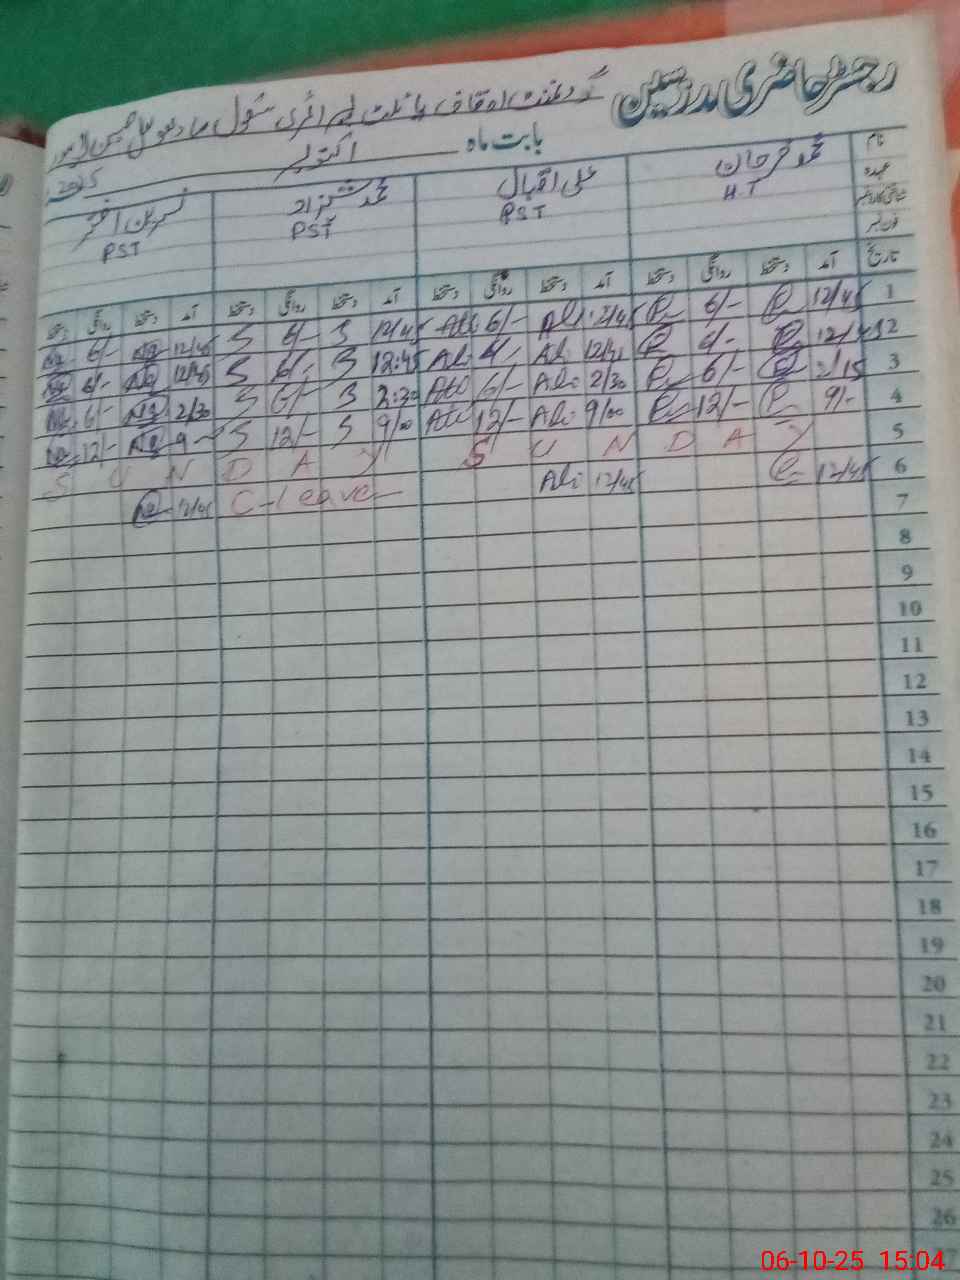 رجسٹر حاضری مدرسین
گورنمنٹ اوقاف پائلٹ پرائمری سکول مادھو لال حسین لاہور
بابت ماہ اکتوبر 2025
نام محمد فرحان علی اقبال محمد شہزاد نسرین اختر
عہدہ H.T PST PST PST
شناختی کارڈ نمبر
فون نمبر
تاریخ آمد دستخط روانگی دستخط آمد دستخط روانگی دستخط آمد دستخط روانگی دستخط آمد دستخط روانگی دستخط
1 12/45 6/- Ali 6/- Ali 12/45 S 6/- S 12/45 6/-
2 12/45 6/- Ali 12/45 Ali 12:45 S 6/- S 12/45 6/-
3 2/15 6/- Ali 2/30 6/- Ali 2:30 S 6/- S 2/30 6/-
4 9/- 12/- Ali 9/00 12/- Ali 9/00 S 12/- S 9 12/-
5 S U N D A Y S U N D A Y
6 12/45 Ali 12/45 C-leave 12/45
7
8
9
10
11
12
13
14
15
16
17
18
19
20
21
22
23
24
25
26
06-10-25 15:04